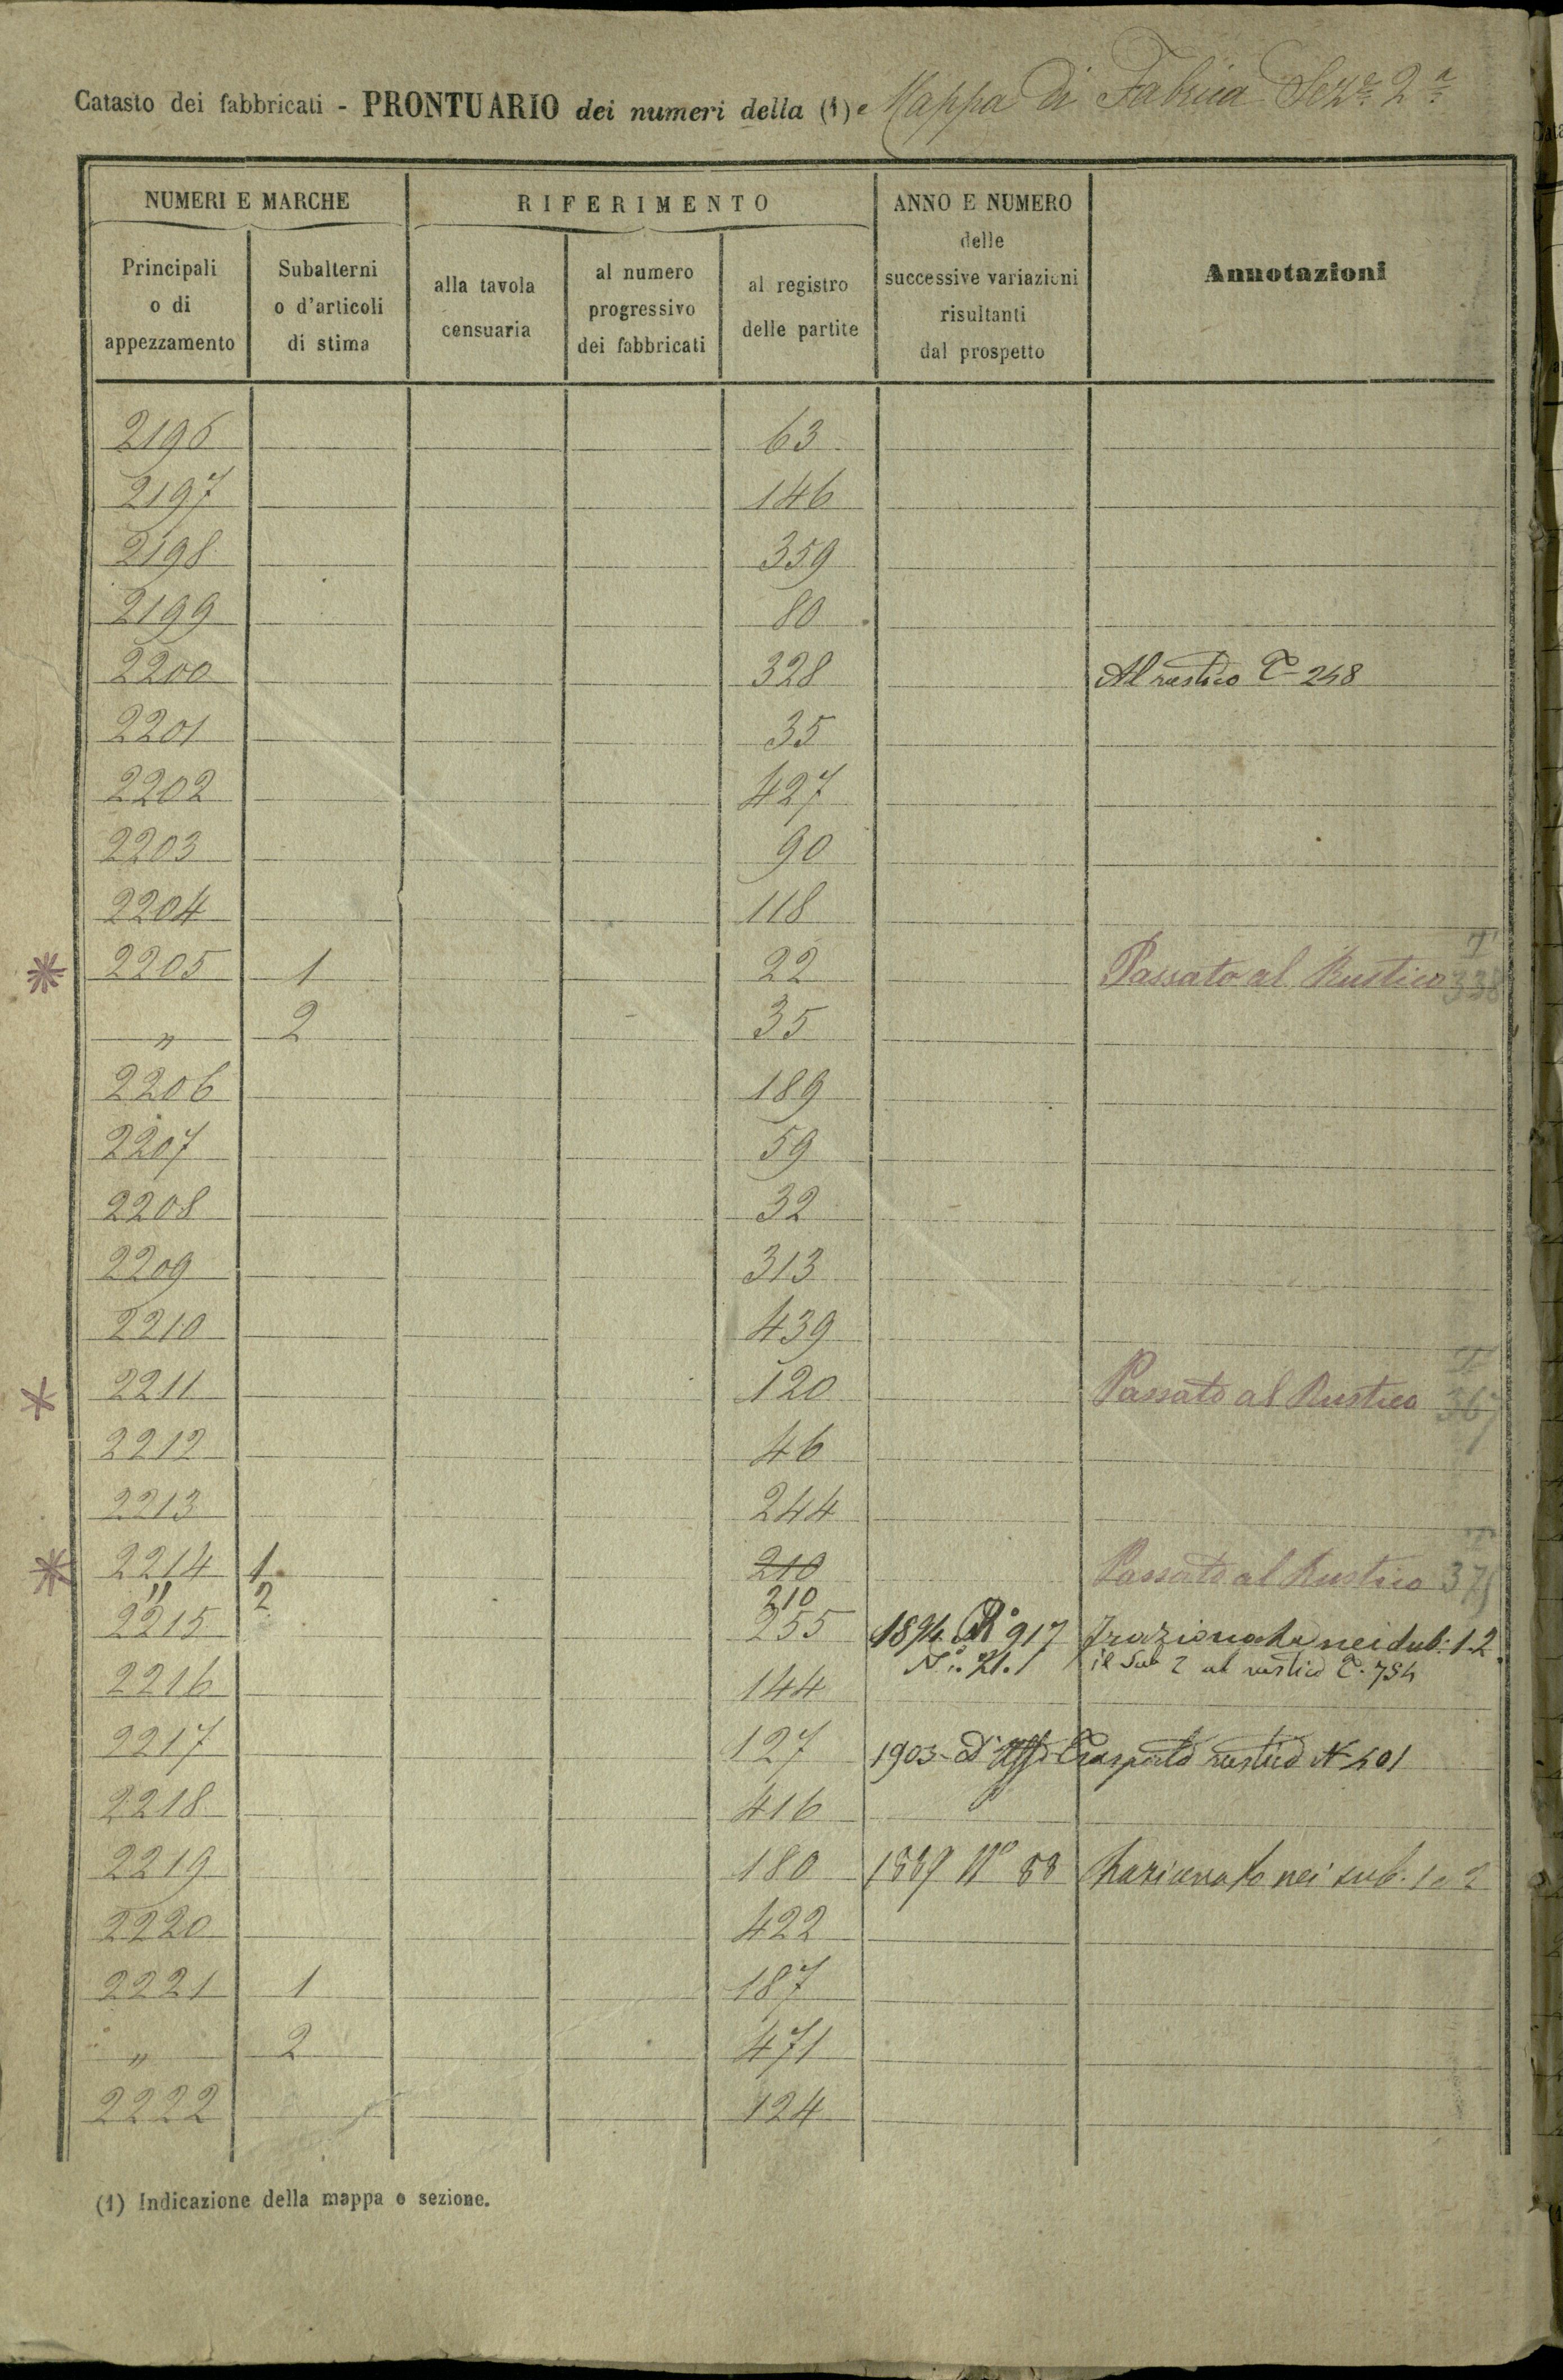 Catasto dei fabbricati - PRONTUARIO dei numeri della (1) Mappa di Fabrica Sez.e 2.a
NUMERI E MARCHE
RIFERIMENTO
ANNO E NUMERO
delle
successive variazioni
risultanti
dal prospetto
Annotazioni
Principali
o di
appezzamento
Subalterni
o d'articoli
di stima
alla tavola
censuaria
al numero
progressivo
dei fabbricati
al registro
delle partite
2196 63
2197 146
2198 359
2199 80
2200 328 Al rustico T 248
2201 35
2202 427
2203 90
2204 118
2205 1 22 Passato al Rustico T 338
" 2 35
2206 189
2207 59
2208 32
2209 313
2210 439
2211 120 Passato al Rustico T 367
2212 46
2213 244
2214 1 210 Passato al Rustico 375
" 2 210
2215 255 1894 917 frazionato nei sub: 1-2
N.° 21.1 il Sub 2 al rustico T. 754
2216 144
2217 127 1903 D'Uff° Trasporto rustico N 401
2218 416
2219 180 1889 N° 88 frazionato nei sub. 1 e 2
2220 422
2221 1 187
" 2 471
2222 124
(1) Indicazione della mappa o sezione.